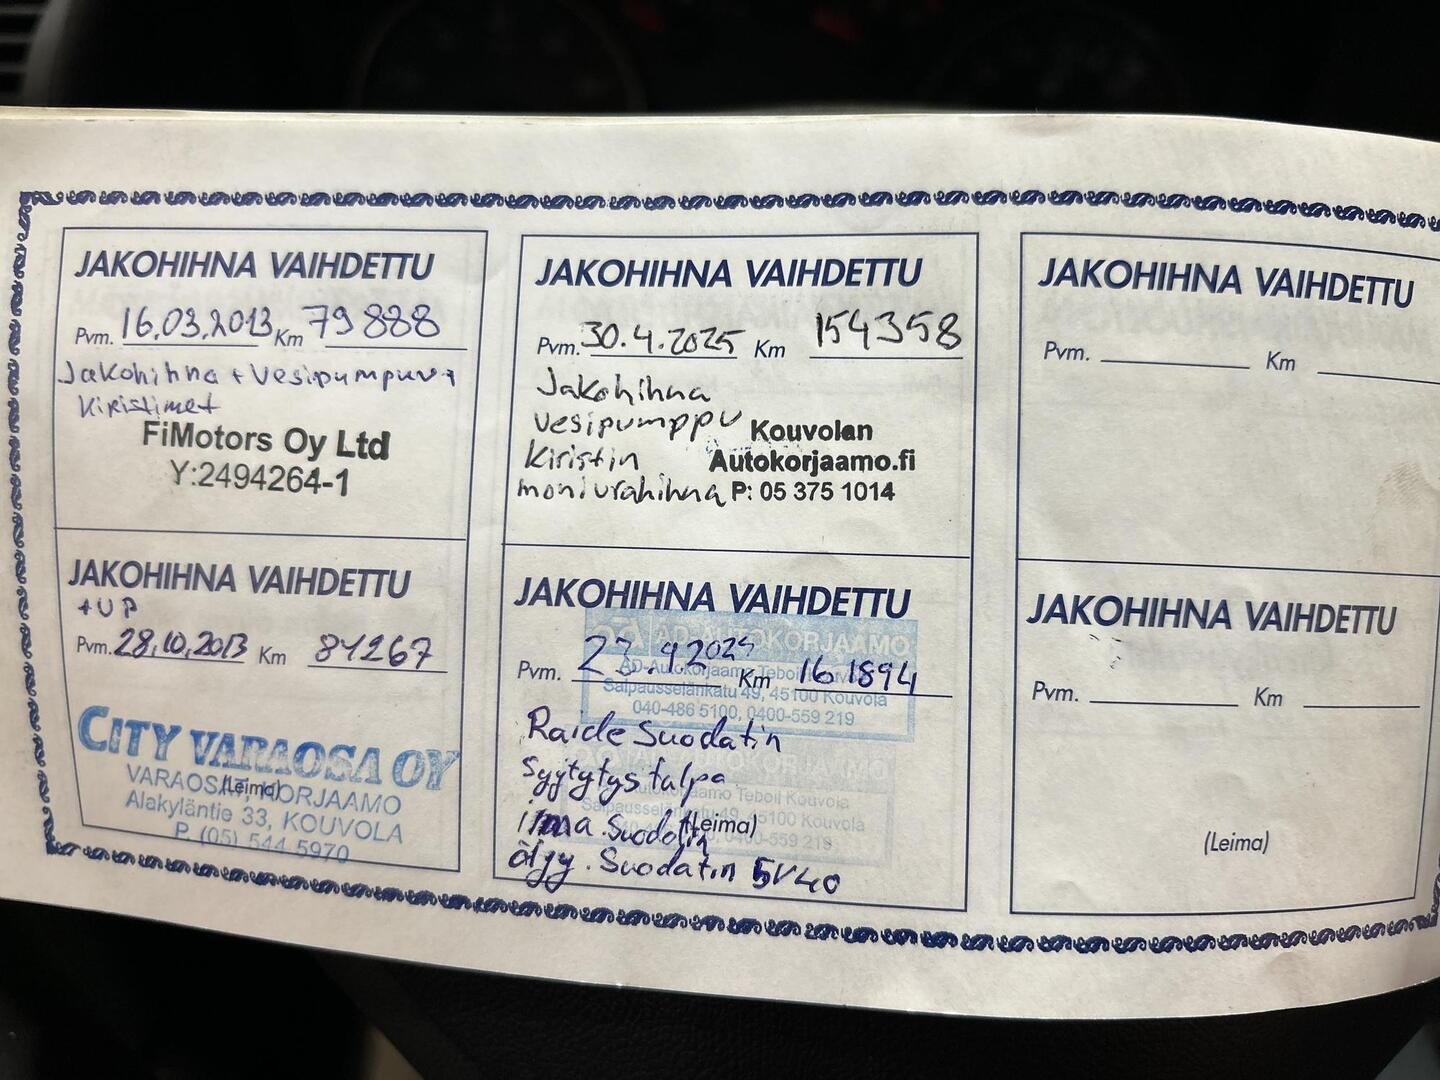 JAKOHIHNA VAIHDETTU
Pvm. 16.03.2013 Km 79888
Jakohihna + Vesipumpuv+
Kiristimet
FiMotors Oy Ltd
Y:2494264-1
JAKOHIHNA VAIHDETTU
+VP
Pvm. 28.10.2013 Km 81267
CITY VARAOSA OY
VARAOSAT, KORJAAMO
(Leima)
Alakyläntie 33, KOUVOLA
P. (05) 544 5970
JAKOHIHNA VAIHDETTU
Pvm. 30.4.2025 Km 154358
Jakohihna
Vesipumppu
Kiristin
moniurahihna
Kouvolan
Autokorjaamo.fi
P: 05 375 1014
JAKOHIHNA VAIHDETTU
AD AUTOKORJAAMO
Pvm. 23.9.2025 Km 161894
AD-Autokorjaamo Teboil Kouvola
Salpausselänkatu 49, 45100 Kouvola
040-486 5100, 0400-559 219
Raide Suodatin
Syytytys tulpa
ilma.Suodatin
(Leima)
ölyy.Suodatin 5V40
AUTOKORJAAMO
Autokorjaamo Teboil Kouvola
Salpausselänkatu 49, 45100 Kouvola
0400-559 219
JAKOHIHNA VAIHDETTU
Pvm. Km
JAKOHIHNA VAIHDETTU
Pvm. Km
(Leima)